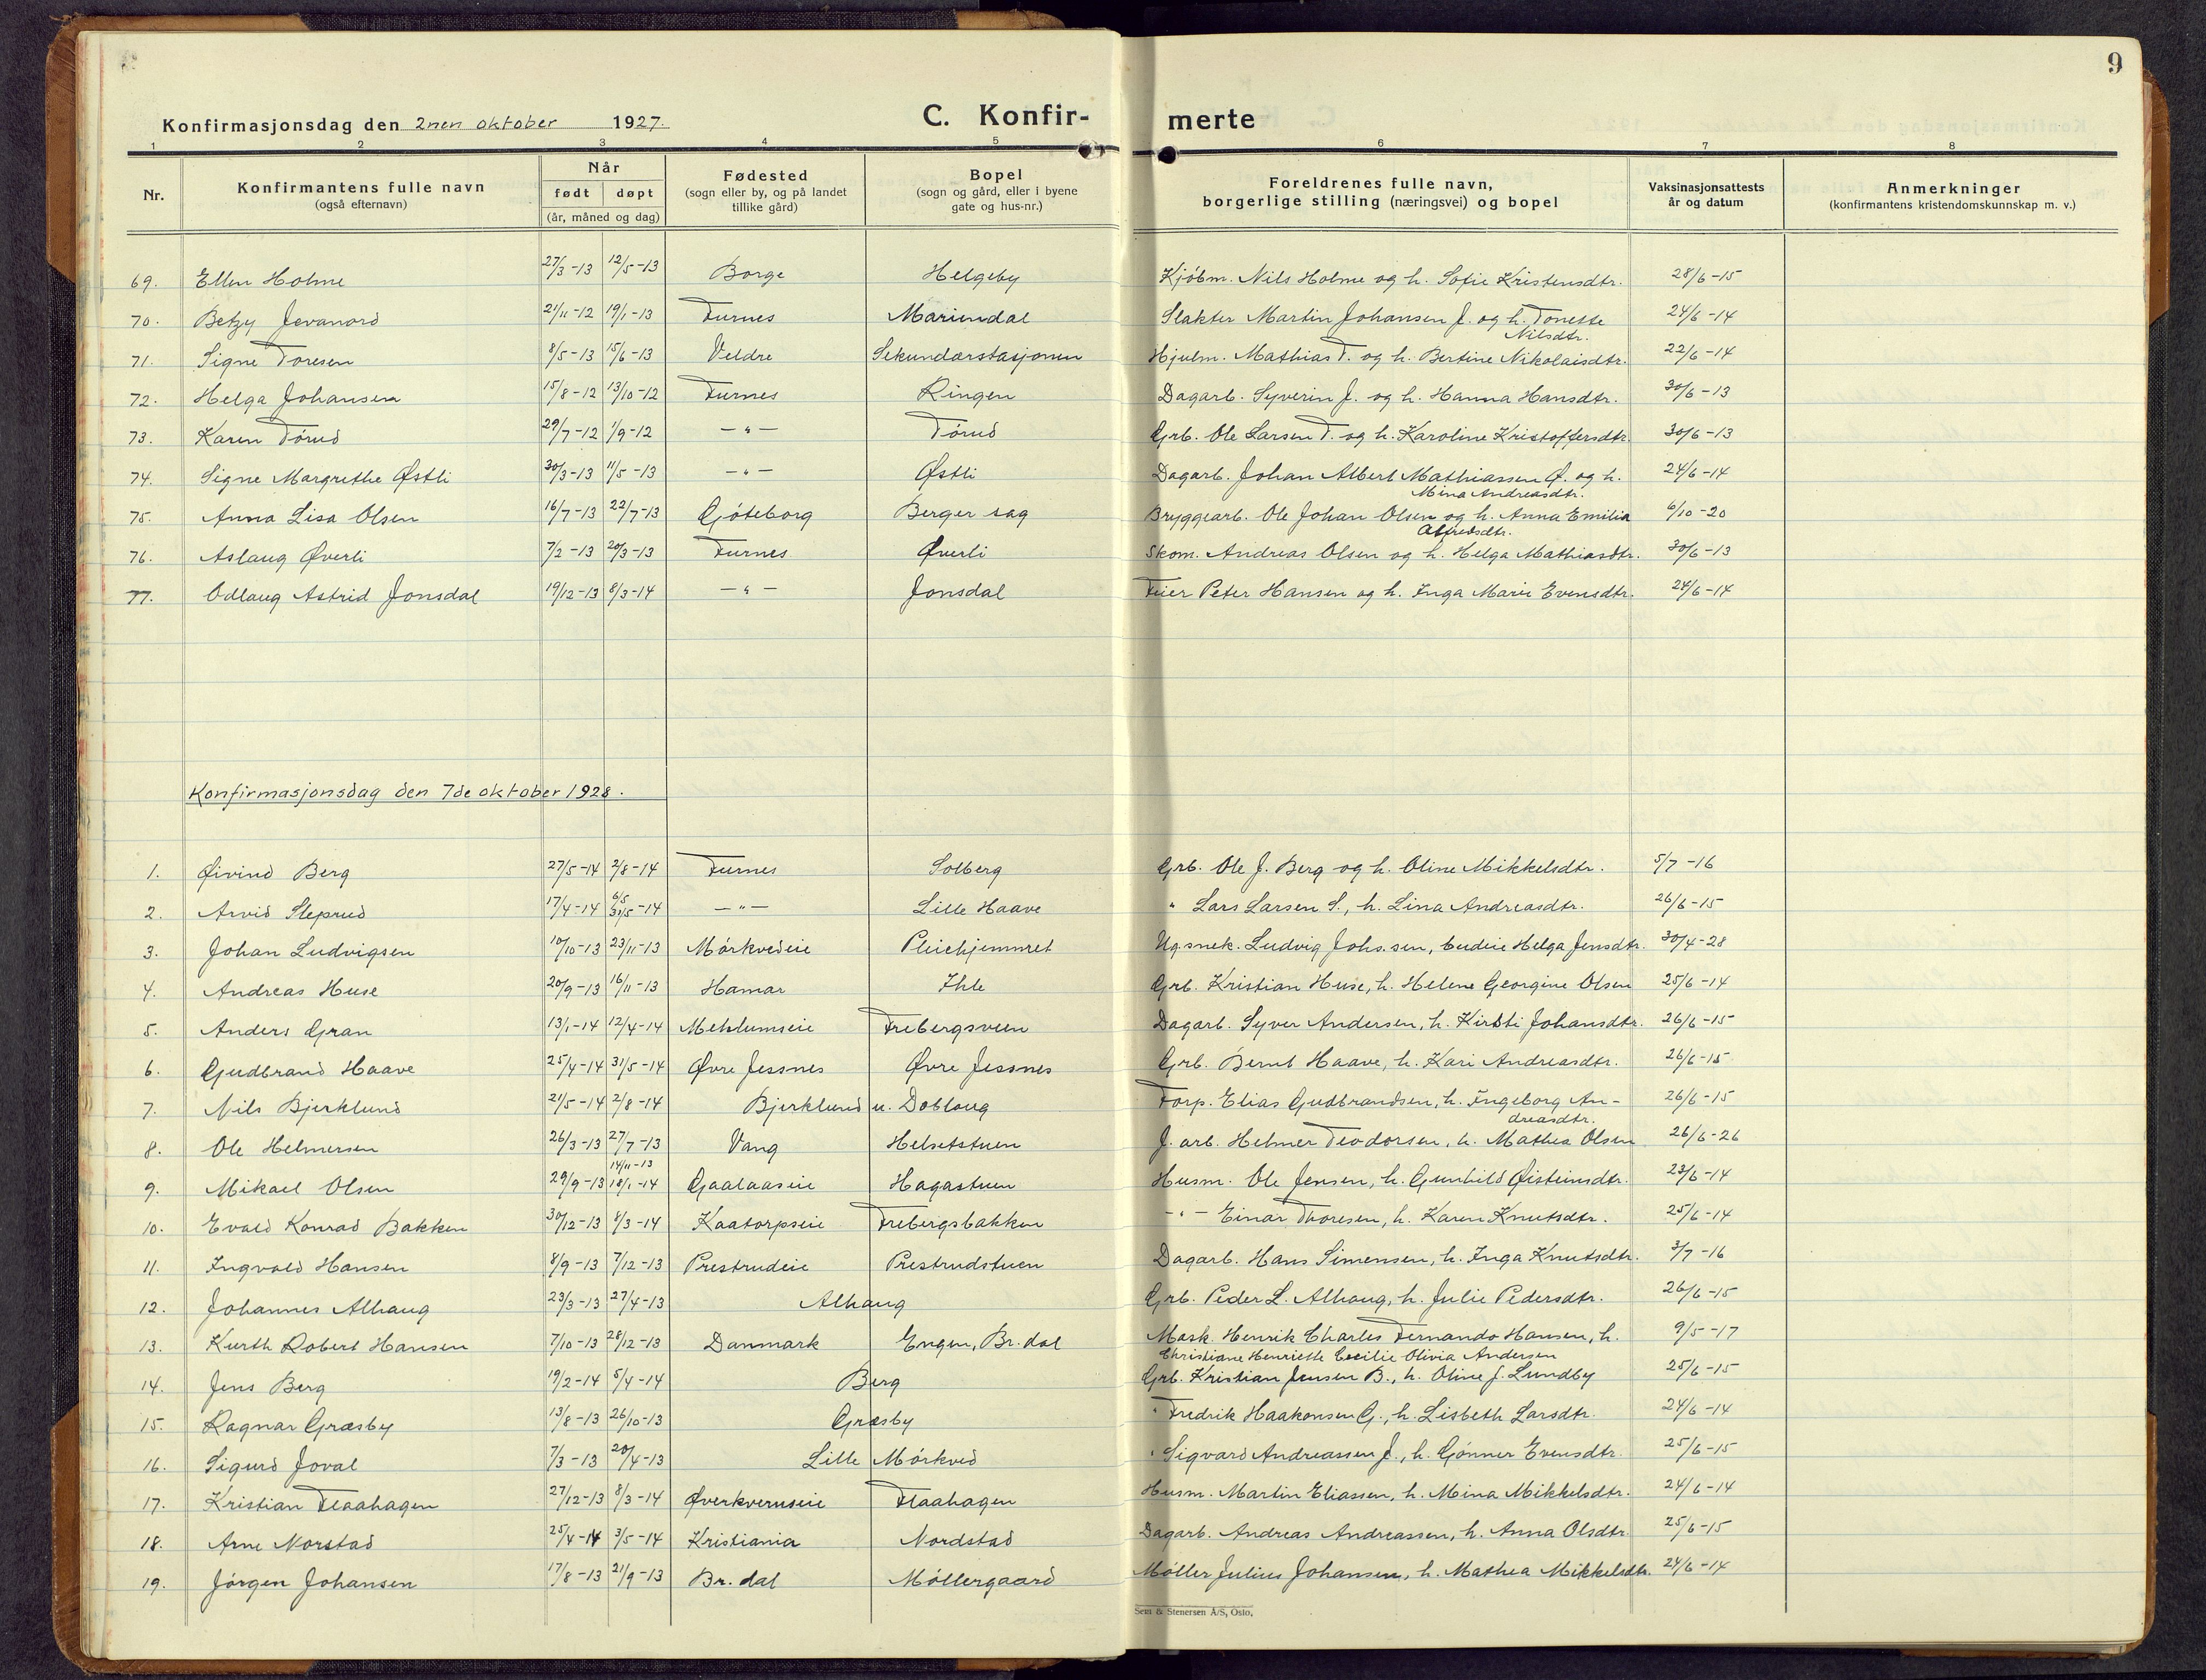 9
Konfirmasjonsdag den 2nen oktober 1927.
C. Konfir-
merte
1 2 3 4 5 6 7 8
Nr.
Konfirmantens fulle navn
(også efternavn)
Når
født døpt
(år, måned og dag)
Fødested
(sogn eller by, og på landet
tillike gård)
Bopel
(sogn og gård, eller i byene
gate og hus-nr.)
Foreldrenes fulle navn,
borgerlige stilling (næringsvei) og bopel
Vaksinasjonsattests
år og datum
Anmerkninger
(konfirmantens kristendomskunnskap m. v.)
69. Ellen Holme 27/3-13 12/5-13 Borge Helgeby Kjöbm. Nils Holme og h. Sofie Kristensdtr. 28/6-15
70. Betzy Jevanord 21/11-12 19/1-13 Furnes Mariendal Slakter Martin Johansen J. og h. Tonette 24/6-14
Nilsdtr.
71. Signe Toresen 8/5-13 15/6-13 Veldre Sekundærstasjonen Hjulm. Mathias T. og h. Bertine Nikolaisdtr. 22/6-14
72. Helga Johansen 15/8-12 13/10-12 Furnes Ringen Dagarb. Syverin J. og h. Hanna Hansdtr. 30/6-13
73. Karen Törud 29/7-12 1/9-12 -"- Törud Grb. Ole Larsen T. og h. Karoline Kristoffersdtr. 30/6-13
74. Signe Margrethe Østli 30/3-13 11/5-13 -"- Østli Dagarb. Johan Albert Mathiassen Ø. og h. 24/6-14
Mina Andreasdtr.
75. Anna Lisa Olsen 16/7-13 22/7-13 Göteborg Berger sag Bryggearb. Ole Johan Olsen og h. Anna Emilia 6/10-20
Alfredsdtr.
76. Aslaug Øverli 7/2-13 20/3-13 Furnes Øverli Skom. Andreas Olsen og h. Helga Mathiasdtr. 30/6-13
77. Odlaug Astrid Jonsdal 19/12-13 8/3-14 -"- Jonsdal Feier Peter Hansen og h. Inga Marie Evensdtr. 24/6-14
Konfirmasjonsdag den 7de oktober 1928.
1. Øivind Berg 27/5-14 2/8-14 Furnes Solberg Grb. Ole J. Berg og h. Oline Mikkelsdtr. 5/7-16
2. Arvid Sleprud 17/4-14 6/5 31/5-14 -"- Lille Haave " Lars Larsen S., h. Lina Andreasdtr. 26/6-15
3. Johan Ludvigsen 10/10-13 23/11-13 Mörkvedeie Pleiehjemmet Ug.snek. Ludvig Johs.sen, budeie Helga Jensdtr. 30/4-28
4. Andreas Huse 20/9-13 16/11-13 Hamar Ihle Grb. Kristian Huse, h. Helene Georgine Olsen 25/6-14
5. Anders Gran 13/1-14 12/4-14 Mehlumseie Frebergsveen Dagarb. Syver Andersen, h. Kirsti Johansdtr. 26/6-15
6. Gudbrand Haave 25/4-14 31/5-14 Øvre Jessnes Øvre Jessnes Grb. Bernt Haave, h. Kari Andreasdtr. 26/6-15
7. Nils Bjerklund 21/5-14 2/8-14 Bjerklund u. Dobloug Forp. Elias Gudbrandsen, h. Ingeborg An- 26/6-15
dreasdtr.
8. Ole Helmersen 26/3-13 27/7-13 Vang Helsetstuen J. arb. Helmer Teodorsen, h. Mathea Olsen 26/6-26
9. Mikael Olsen 29/9-13 14/11-13 18/1-14 Gaalaaseie Hagastuen Husm. Ole Jensen, h. Gunhild Øisteinsdtr. 23/6-14
10. Evald Konrad Bakken 30/12-13 8/3-14 Kaatorpseie Frebergsbakken -"- Einar Thoresen, h. Karen Knutsdtr. 25/6-14
11. Ingvald Hansen 8/9-13 7/12-13 Prestrudeie Prestrudstuen Dagarb. Hans Simensen, h. Inga Knutsdtr. 3/7-16
12. Johannes Alhaug 23/3-13 27/4-13 Alhaug Grb. Peder L. Alhaug, h. Julie Pedersdtr. 26/6-15
13. Kurth Robert Hansen 7/10-13 28/12-13 Danmark Engen, Br.dal Mask. Henrik Charles Fernando Hansen, h. 9/5-17
Christiane Henriette Cecilie Olivia Andersen
14. Jens Berg 19/2-14 5/4-14 Berg Grb. Kristian Jensen B., h. Oline J. Lundby 25/6-15
15. Ragnar Græsby 13/8-13 26/10-13 Græsby " Fredrik Haakonsen G., h. Lisbeth Larsdtr. 24/6-14
16. Sigurd Joval 7/3-13 20/4-13 Lille Mörkved " Sigvard Andreassen J., h. Gönner Evensdtr. 25/6-15
17. Kristian Flaahagen 27/12-13 8/3-14 Øverkverneie Flaahagen Husm. Martin Eliassen, h. Mina Mikkelsdtr. 24/6-14
18. Arne Norstad 25/4-14 3/5-14 Kristiania Nordstad Dagarb. Andreas Andreassen, h. Anna Olsdtr. 25/6-15
19. Jörgen Johansen 17/8-13 21/9-13 Br. dal Möllergaard Möller Julius Johansen, h. Mathea Mikkelsdtr. 24/6-14
Sem & Stenersen A/S, Oslo.